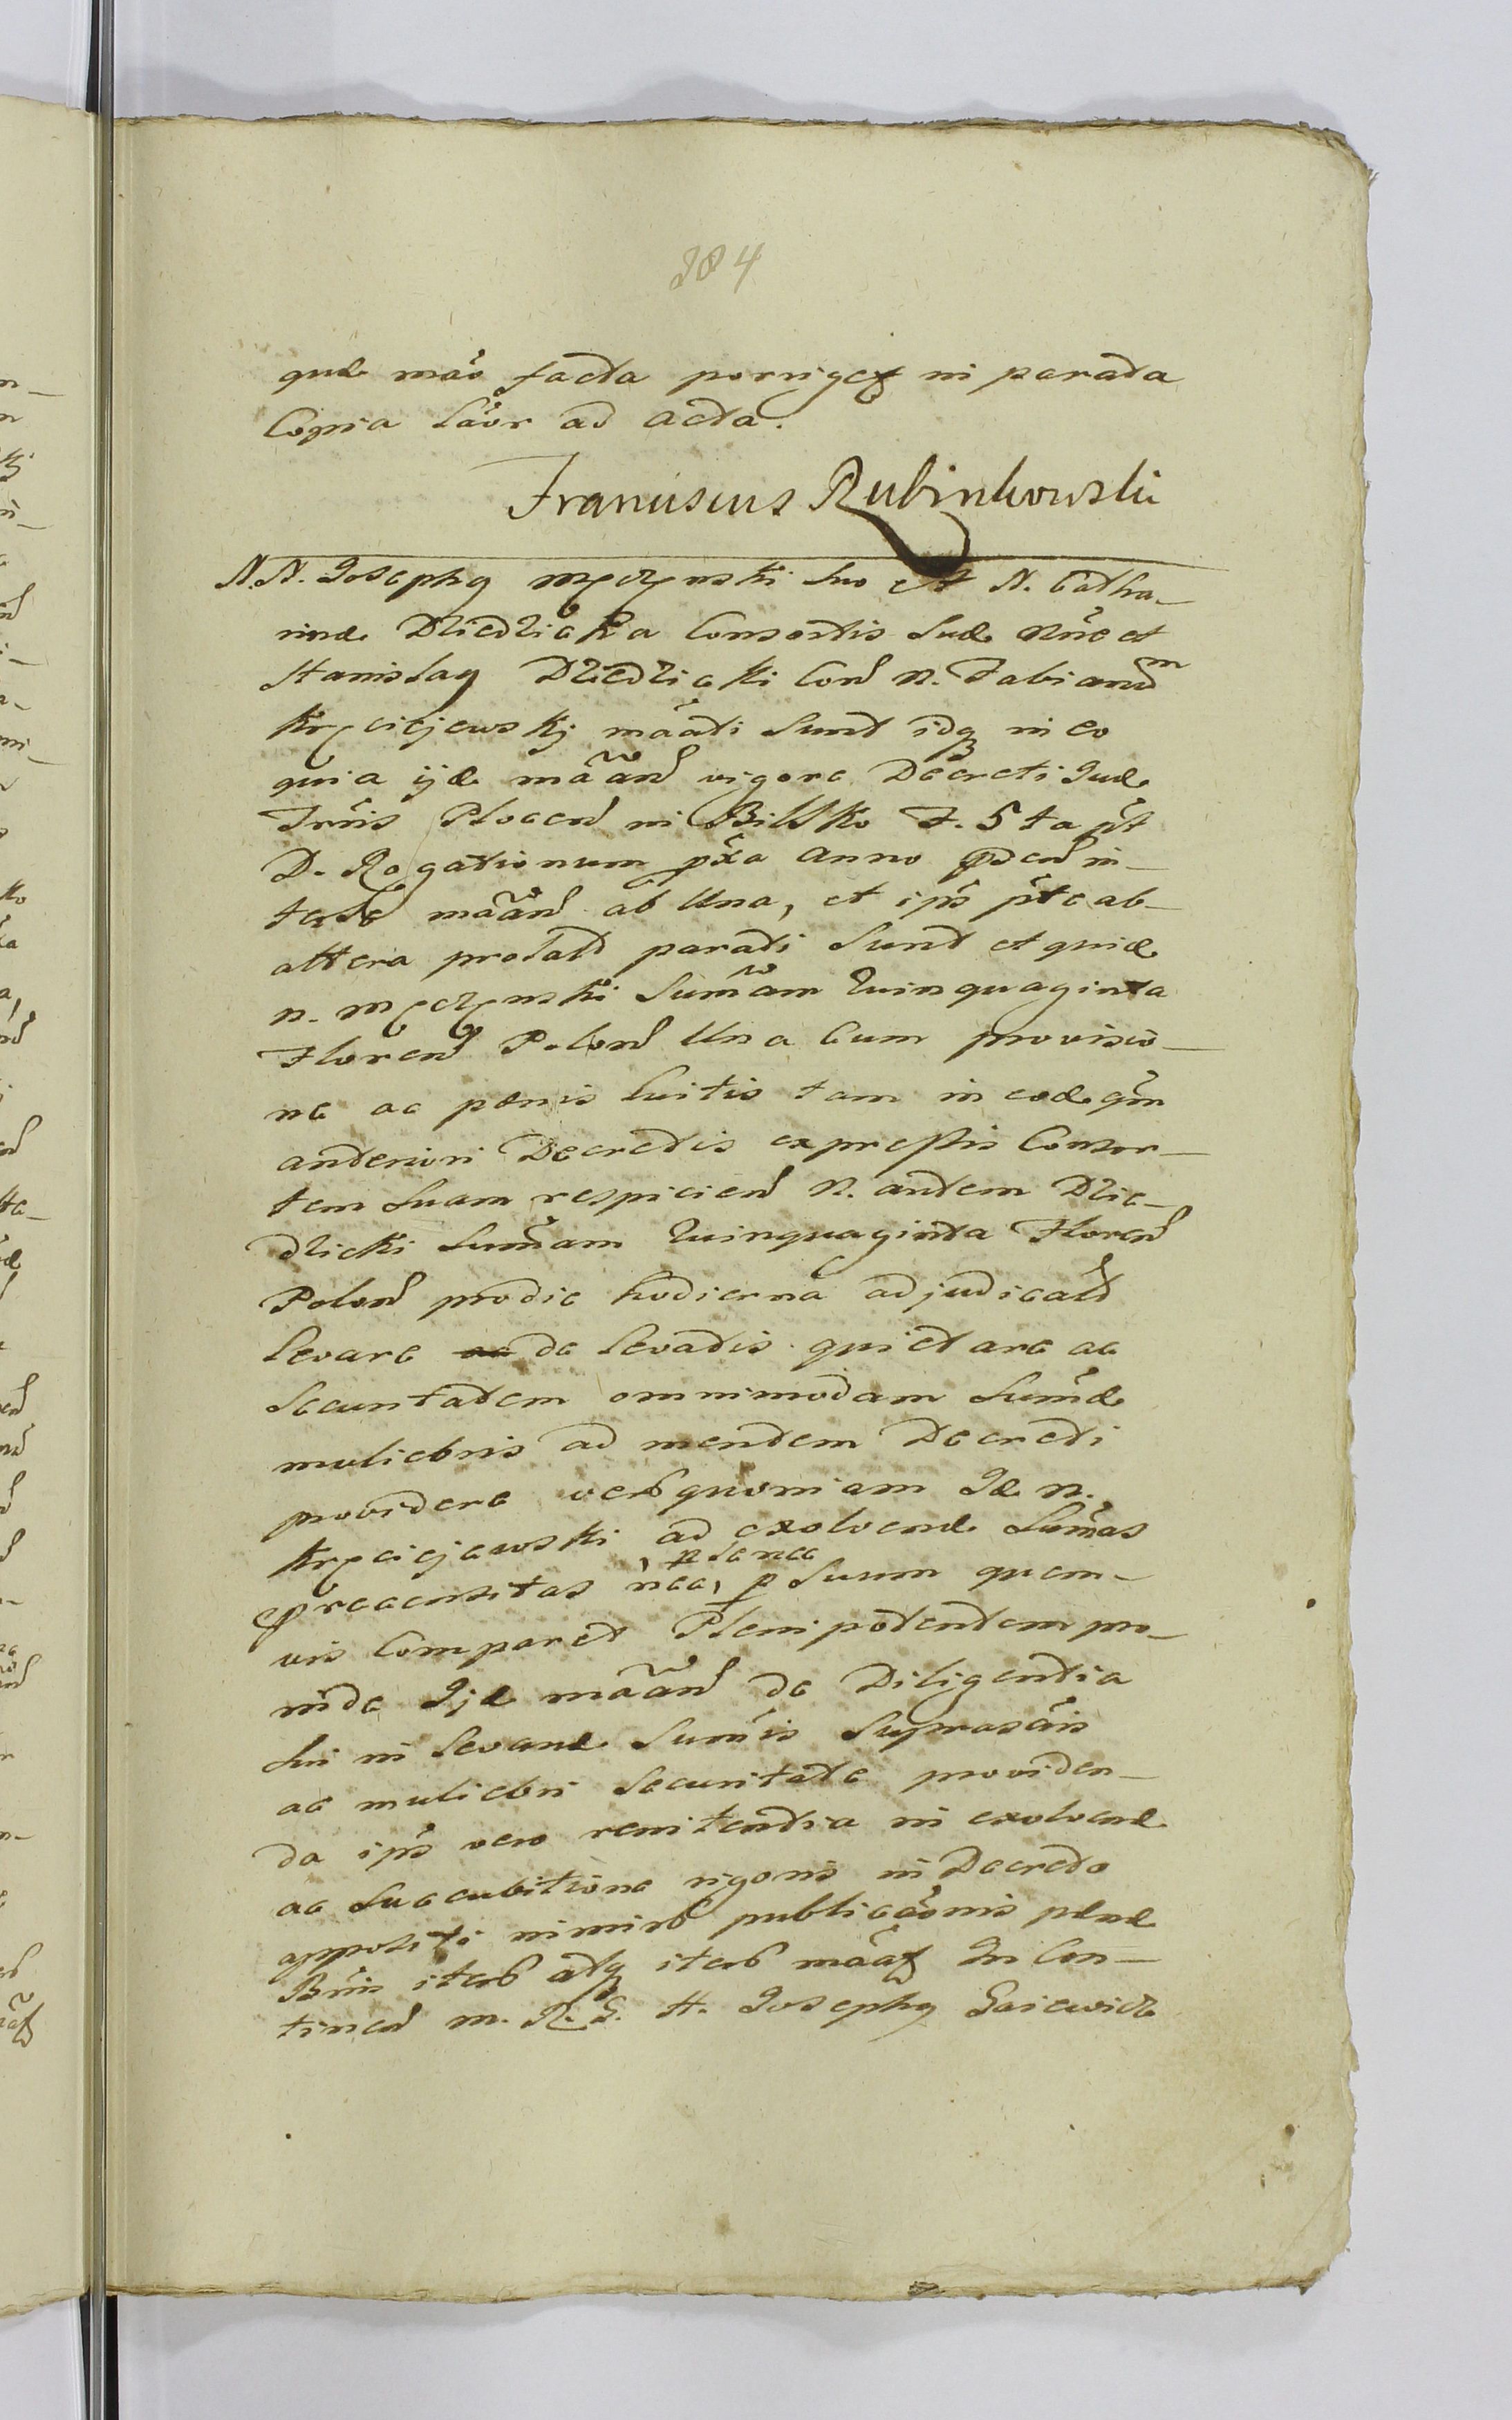 384
quæ mão facta porriget in parata
Copia lãor ad acta.
Franciscus Rubinkowski
N.N. Josephq Męczynski suo et N. Catha-
rinæ Dziedzicka Consortis suæ nõie et
Stanislaq Dziedzicki Con̄ N. Fabianum
Kręciejewskj mãati sunt idq in eo
quia ijd mãan̄ vigore Decreti Jud
Trñis Plocen̄ in Bilsko F. 5ta pt
D. Rogationum pxa anno pden̄ in-
ter mãan̄ ab una, et ips pte ab-
altera prolat parati sunt et quid
N. Męczynski Sumam Quinquaginta
Floren̄ Polon̄ Una cum provisio-
ne ac pænis luitis tam in eod qm
anteriori Decretis expressis Consor-
tem suam respicien̄ N. autem Dzie-
dzicki Sumam Quinquaginta Floren̄
Polon̄ prodie hodierna adjudicat
levare de levatis quietare ac
Securitatem omnimodam Sumæ
muliebris ad mentem Decreti
providere verb quoniam Id N.
Kręciejewski ad exolvend Sumas
præcensitas nec, p senec p suum quem-
vis Comparet Plenipotentem pro-
inde Ijd mãan̄ de Diligentia
sui in levand Sumis suprascris
ac muliebri Securitate providen-
da ips vero renitentia in exolvend
ac succubitione rigoris in Decreto
appositi nimirb publicaõnis pænæ
Bnis iterb atq iterb mãat In Con-
tinen̄ M. R. G. H. Josephq Gaiewicz